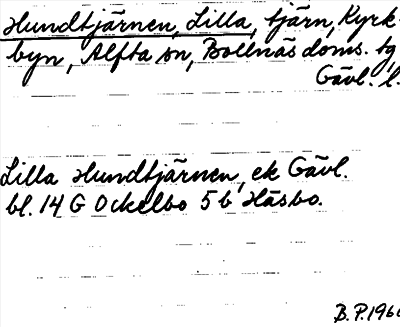 Hundtjärnen, Lilla, tjärn, Kyrk-
byn, Alfta sn, Bollnäs doms. tg
Gävl. l.
Lilla Hundtjärnen, ek Gävl.
bl. 14 G Ockelbo 5 b Häsbo.
B.P. 196